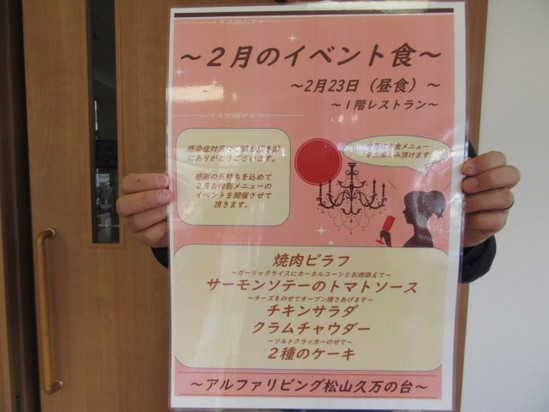 ～２月のイベント食～
～2月23日（昼食）～
～１階レストラン～
感染症対策に
にありがとうございます。
感謝の気持ちを込めて
２月も特別メニューの
イベントを開催させて
頂きます。
メニュー
お楽しみ頂けます
焼肉ピラフ
～ガーリックライスにカーネルコーンとお肉添えて～
サーモンソテーのトマトソース
～チーズをのせてオーブン焼きあげます～
チキンサラダ
クラムチャウダー
～ソルトクラッカーのせて～
２種のケーキ
～アルファリビング松山久万の台～